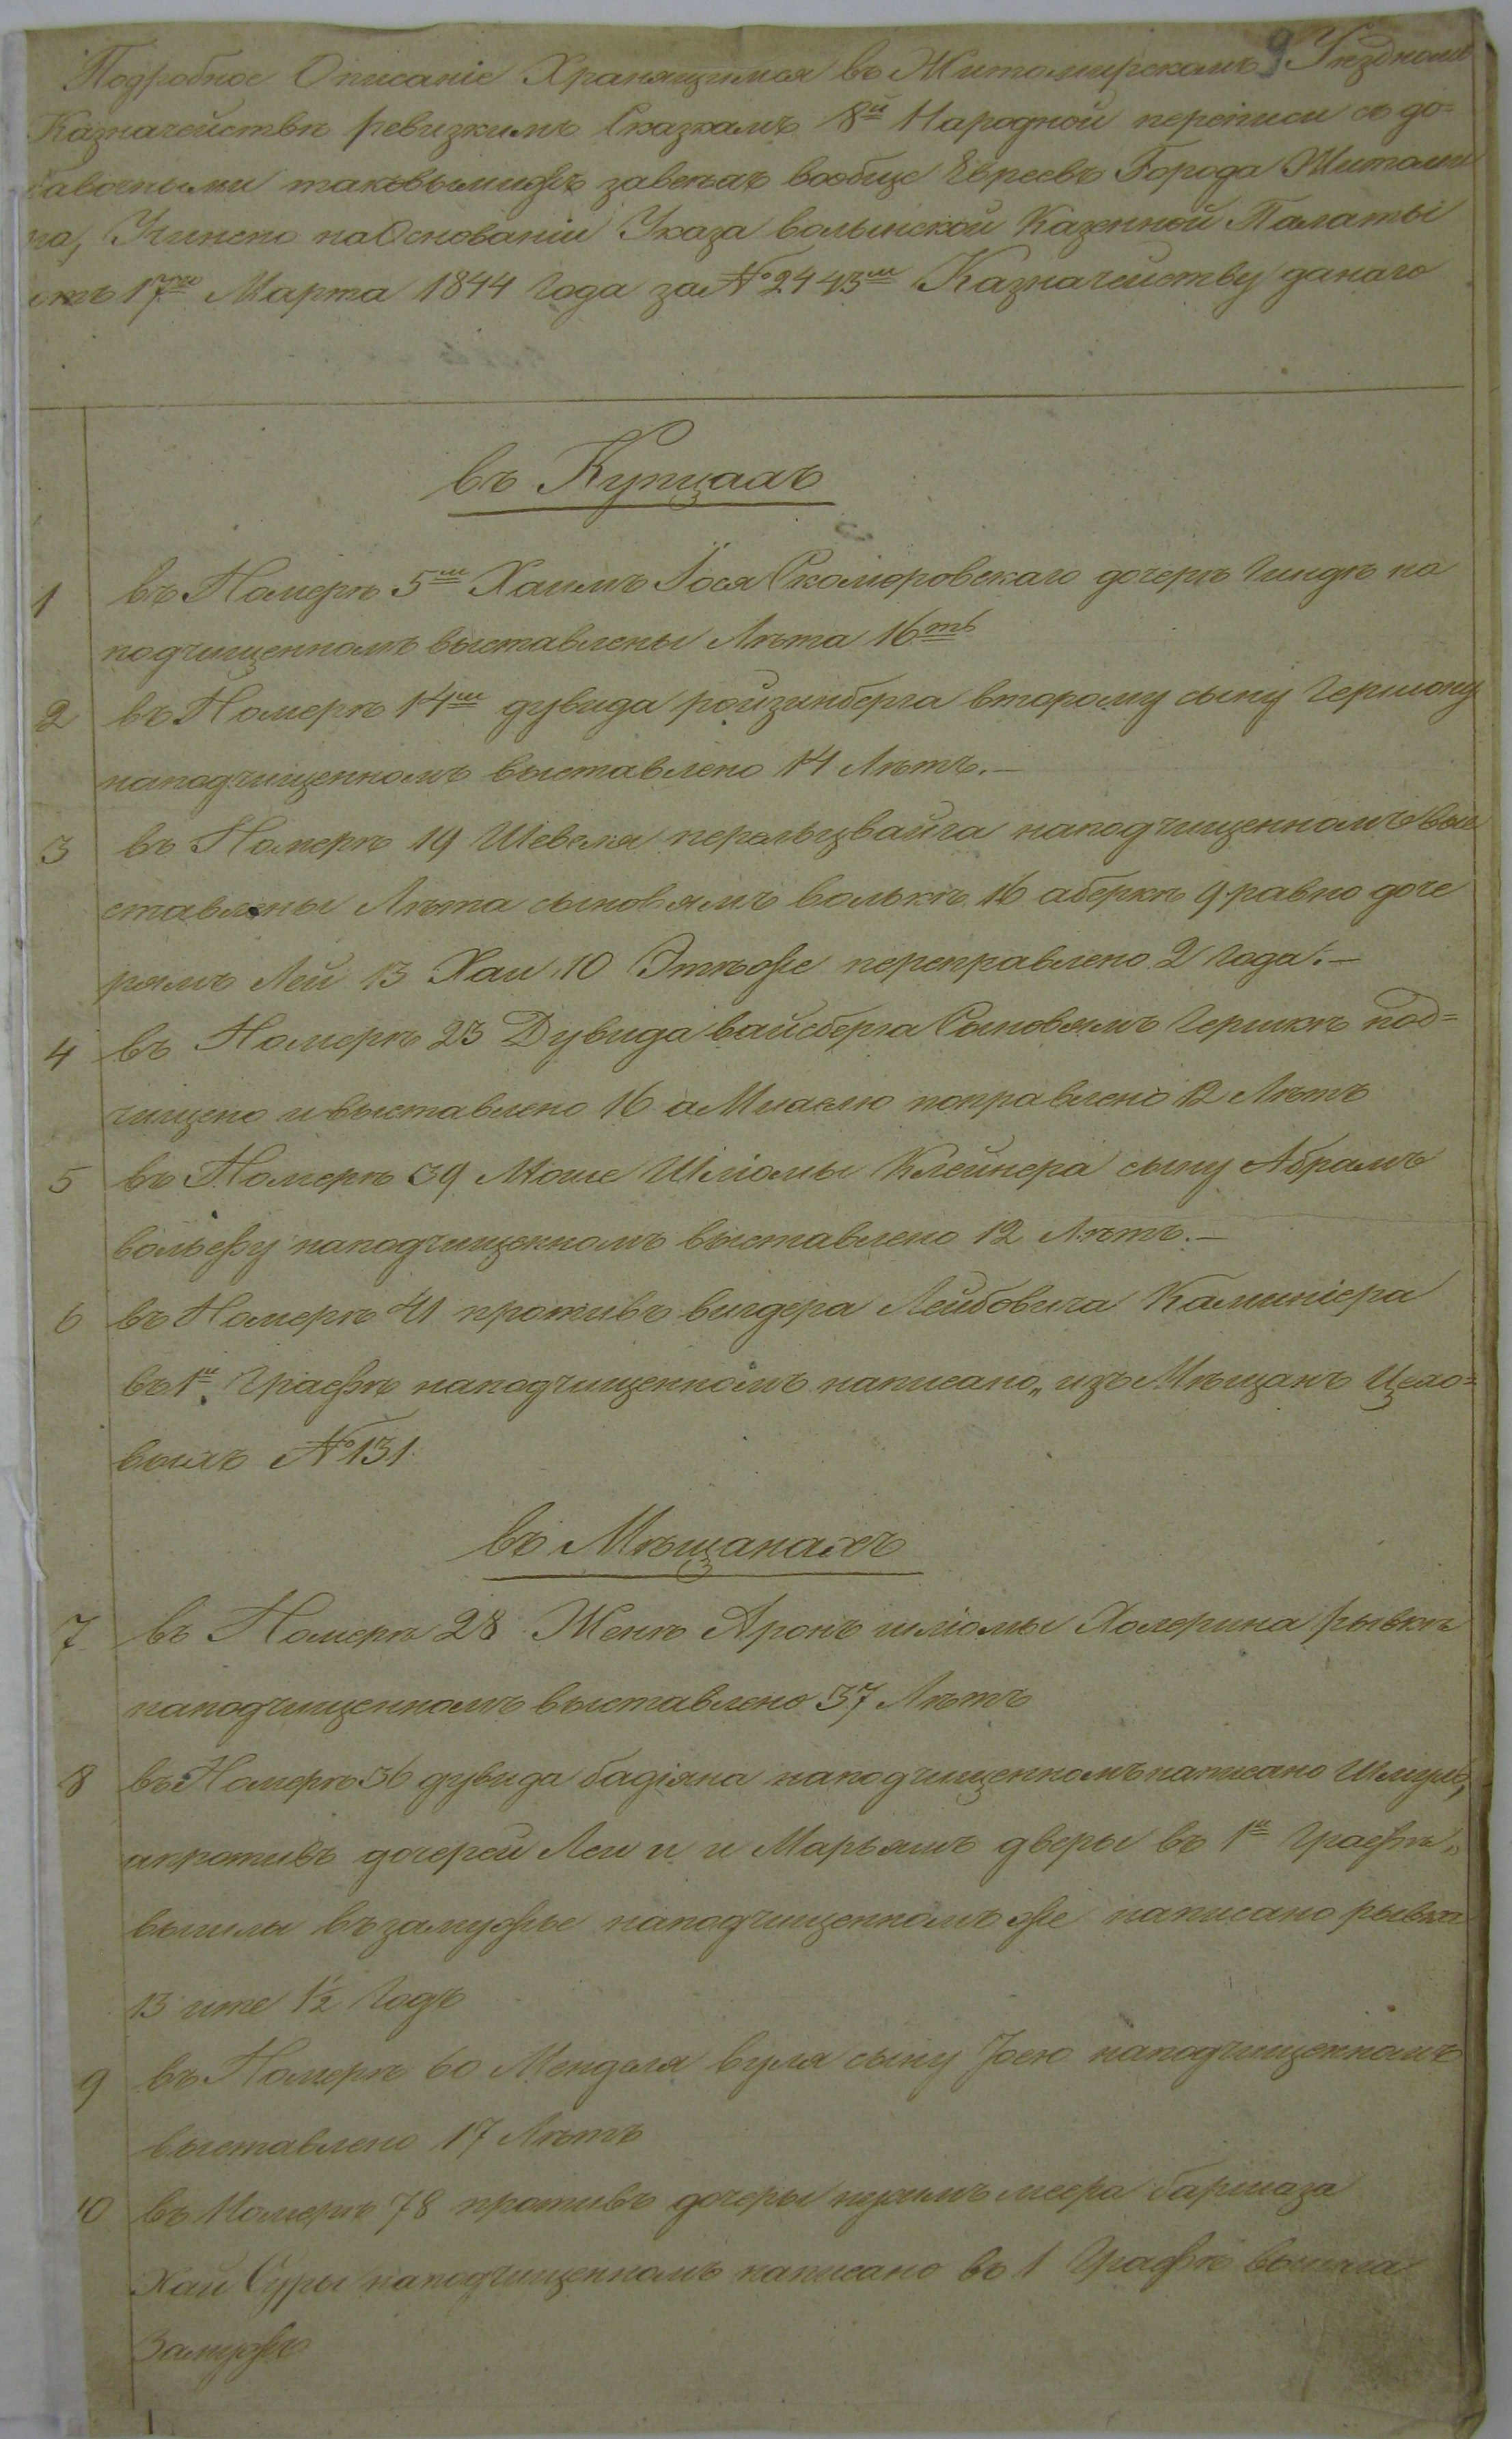 9
Подробное Описаніе Хранящимся въ Житомирскомъ Уездномъ
Казначействѣ ревизкимъ Сказкамъ 8й Народной переписи съ до=
бавочными таковымижъ завсехъ вообще Евреевъ Города Житоми
ра, Учинено наОснованіи Указа волынской Казенной Палаты
отъ 17го Марта 1844 Года за №2443м Казначейству данаго
въ Купцахъ
1 въ Номерѣ 5м Хаимъ Іося Скоморовскаго дочерѣ Гиндѣ на
подчищенномъ выставлены Лѣта 16ть
2 въ Номерѣ 14м дувида ройзинберга второму сыну Гершону
наподчищенномъ выставлено 14 Лѣтъ.—
3 въ Номерѣ 19 Шевеля перельцвайга наподчищенномъ вы
ставлены Лѣта сыновямъ волькѣ 16 аберкѣ 9 равно доче
рямъ Леи 13 Хаи 10 Эткѣже переправлено 2 Года.—
4 въ Номерѣ 23 Дувида вайсберга Сыновямъ Гершкѣ под=
чищено и выставлено 16 аМихелю поправлено 12 Лѣтъ
5 въ Номерѣ 39 Моше Шліомы Клейнера сыну Абрамъ
вольфу наподчищенномъ выставлено 12 Лѣтъ.—
6 въ Номерѣ 41 противъ вигдера Лейбовича Каминіера
въ 1й Графѣ наподчищенномъ написано „изъ Мѣщанъ Цехо=
выхъ №131
въ Мѣщанахъ
7 въ Номерѣ 28 Женѣ Аронъ шліомы Холерина рывкѣ
наподчищенномъ выставлено 37 Лѣтъ
8 въ Номерѣ 36 дувида бадіяна наподчищенномъ написано Шмуль,
апротивъ дочерей Леи и и Марьямъ дверы въ 1й Графѣ „
вышлы възамужье наподчищенномъ же написано рывка
13 ите 1½ Годъ
9 въ Номерѣ 60 Менделя вуля сыну Іосю наподчищенномъ
выставлено 17 Лѣтъ
10 въ Номерѣ 78 противъ дочеры меера бармаза
Хаи Суры наподчищенномъ написано во 1 Графѣ вышла
Замужъ